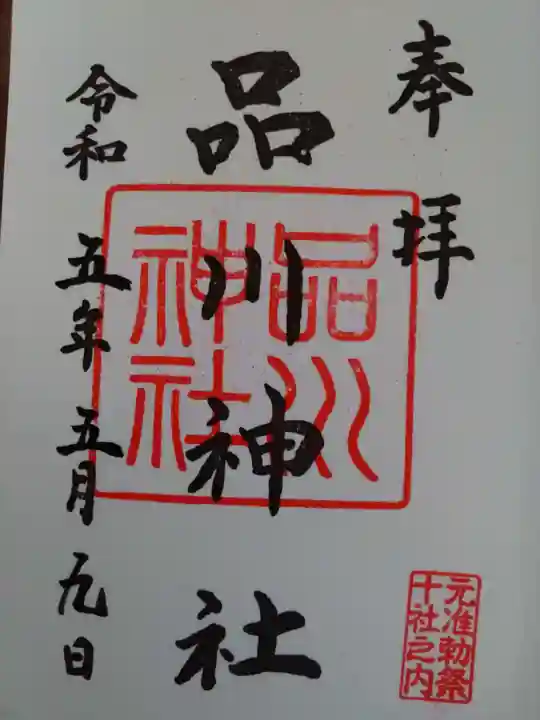 奉拝
品川神社
品川
神社
令和五年五月九日
元准勅祭
十社之内